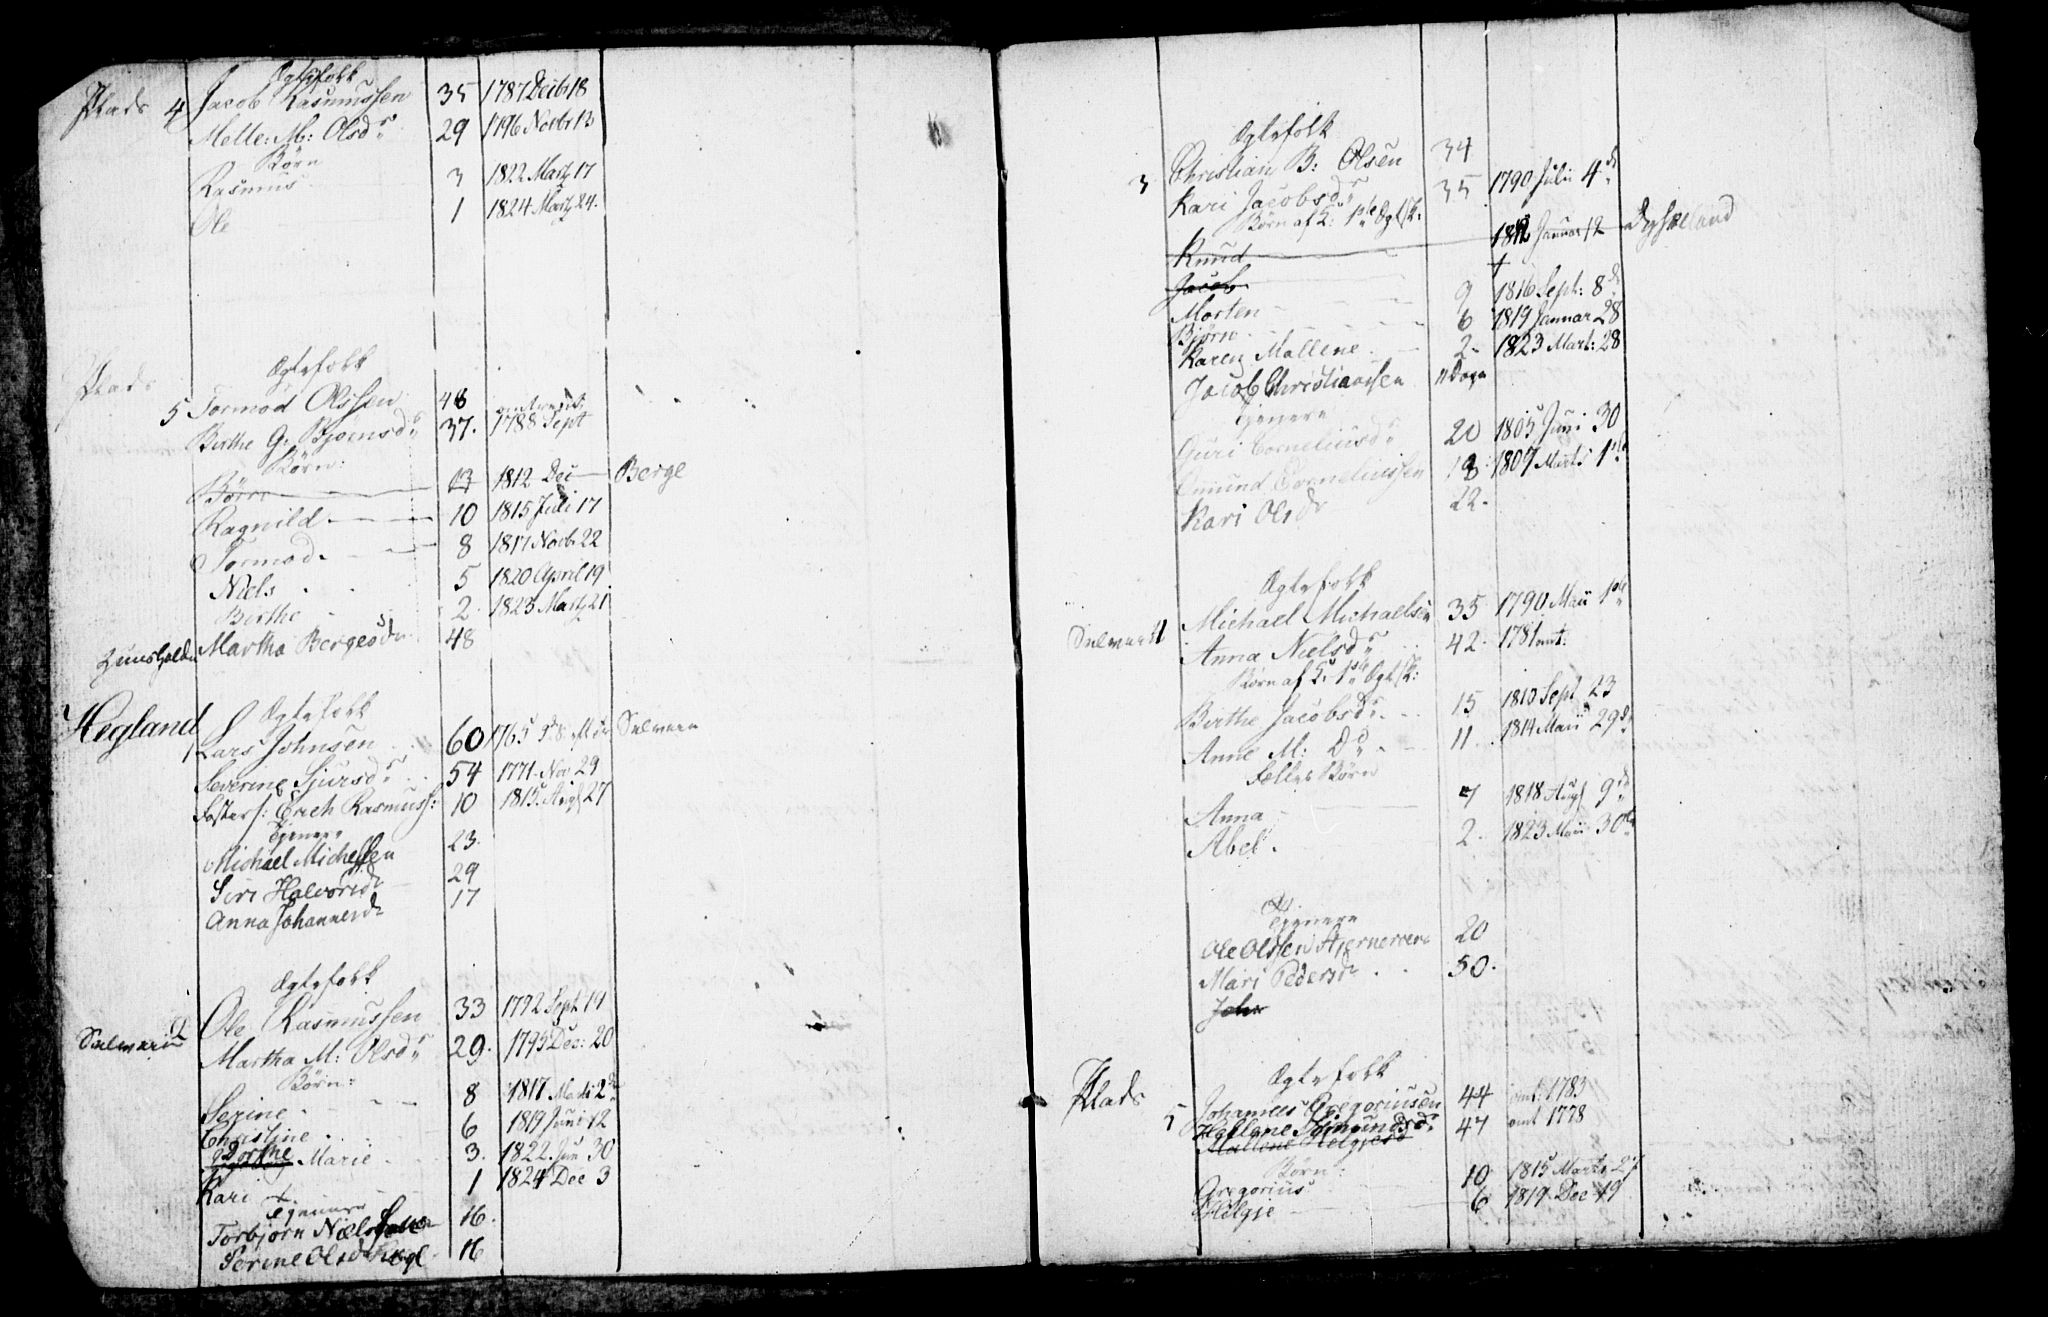 Ægtefolk
Plads 4 Jacob Rasmussen 35 1787 Decbr 18
Mette: M: Olsdr 29 1796 Novbr 13
Børn
Rasmus 3 1822 Marts 17
Ole 1 1824 Marts 24.
Ægtefolk
Plads 5 Tormod Olssen 48
Birthe G: Bjørnsdr 37. 1788 Sept
Børn:
Børn 13 1812 Dec Berge
Ragnild 10 1815 Juli 17
Tormod 8 1817 Novb 22
Niels 5 1820 April 19
Birthe 2. 1823 Marts 21
Martha Bergesdr 48
Ægtefolk
Hegland 1 Lars Johnsen 60 1765 Selveier
Severine Sjursdr 54 1771. Nov 29
Foster s: Erich Rasmuss: 10 1815. Aug 27
Tjenere
Michael Michelsen 23.
Siri Halvorsdr 29
Anna Johannesdr 17
Ægtefolk
2 Ole Rasmussen 33 1792 Sept 19
Selveier
Martha M: Olsdr 29. 1795 Dec: 20
Børn:
Serine 8 1817 Marts 2d
Christine 6 1819 Juni 12
Dorthe Marie 3. 1822. Jun 30
Kari 1 1824 Dec 3
Tjenere
Torbjørn Nielssen 16.
Serine Olsdr 16
Ægtefolk
3 Christian B: Olsen 34
Kari Jacobsdr 35 1790 Julii 4de
Børn af K: 1ste Ægtsk:
Knud 1812 Januar 12
Jacob †
Morten 9 1816 Sept: 8de
Bjørn 6 1819 Januar 28
Karen Mallene 2 1823 Mart: 28
Jacob Christianssen 11 Dage
Tjenere
Guri Corneliusdr 20 1805 Juni 30
Omund Corneliussen 18 1807 Marts 1ste
Kari Olsdr 22.
Ægtefolk
Selveier 4 Michael Michaelsen 35 1790 Maii 1ste
Anna Nielsdr 42. 1781 omt:
Børn af K: 1ste Ægtsk:
Birthe Jacobsdr 15 1810 Sept 23
Anne M: Dr 11. 1814 Maii 29de
Fælles Børn
Anna 7 1818 Aug 9de
Abel. 2. 1823 Maii 30te
Tjenere
Ole Olssen 20
Mari Pedersdr 50.
John
Ægtefolk
Plads 5 Johannes Gregoriussen 44 omt: 1783
Hallene Tomundsdr 47 omt 1778
Mallene Helgjesd
Børn:
Gregorius 10 1815 Marts 27
Helgje 6 1819. Dec 19